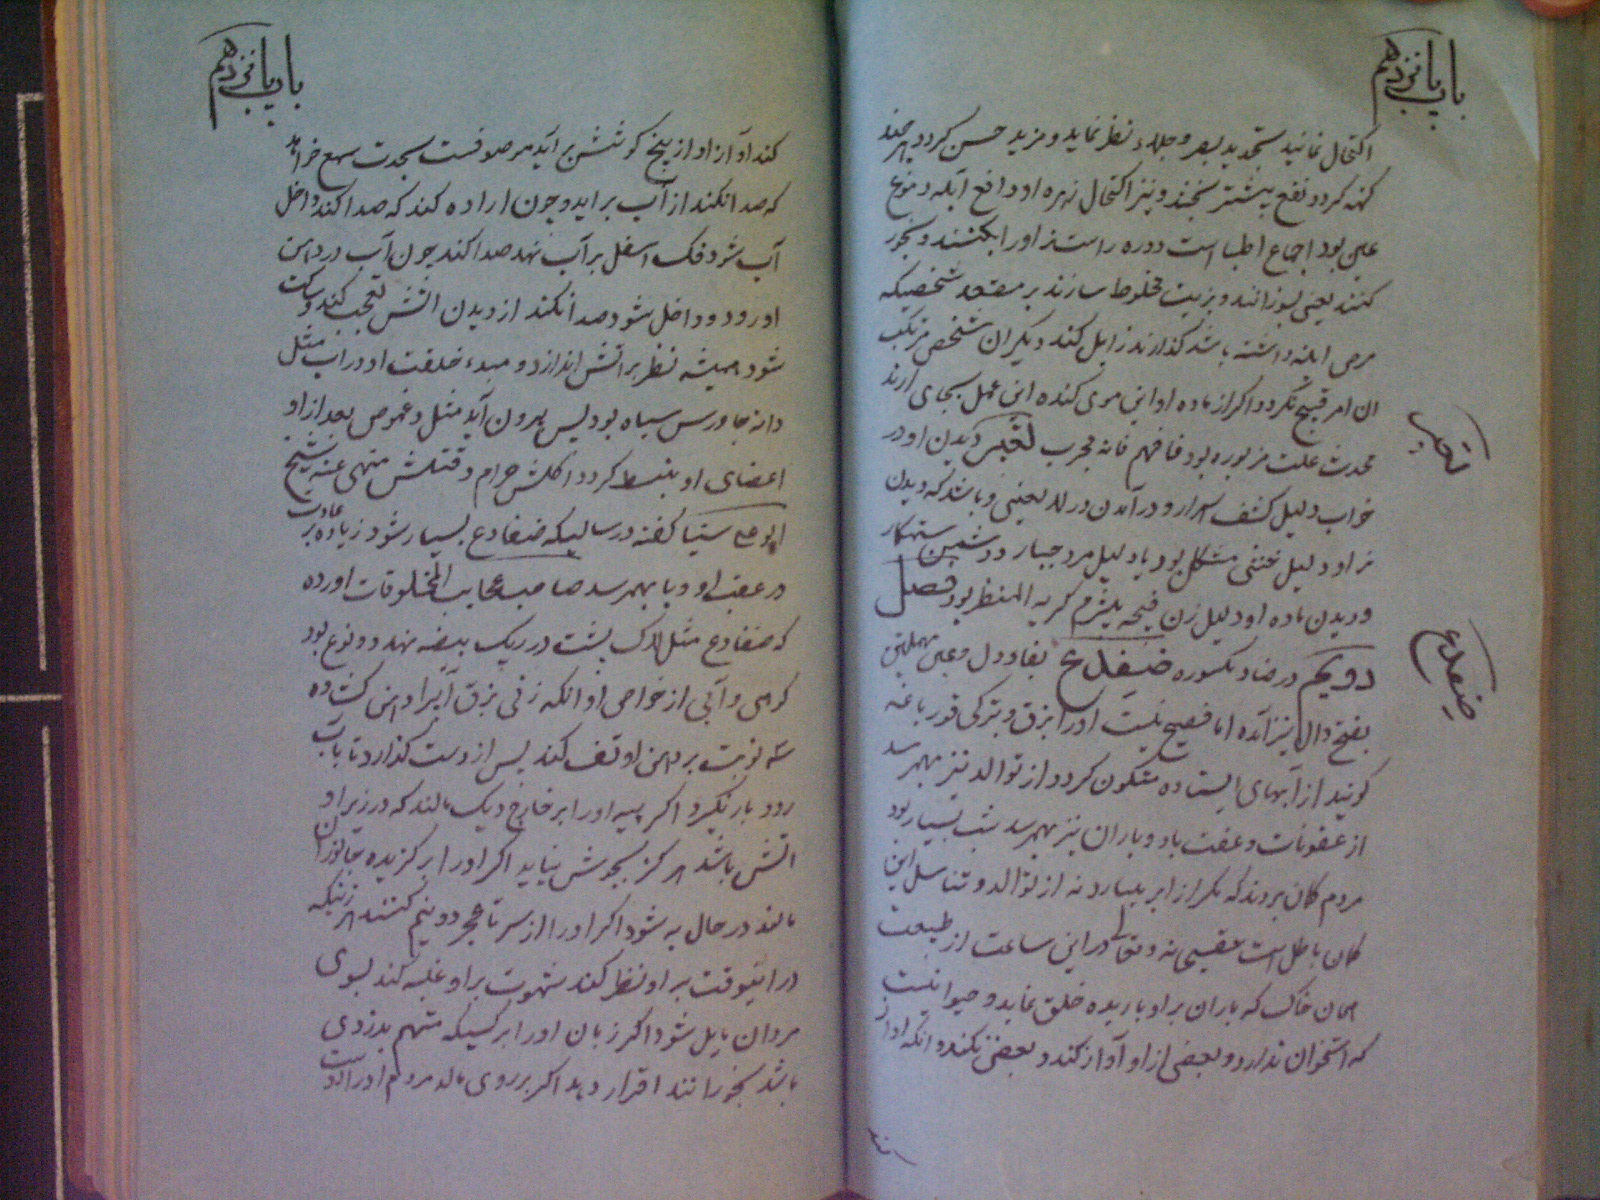 باب پانزدهم
اکتحال نمائید ستحدید بصر و جلاء نظر نماید و مزید حسن کردد هر چند
کهنه کردد نفع بیشتر بخشد و نیز اکتحال زهره او دافع آبله و نوع
عین بود اجماع اطبا است دوره راستند اورا بکشند و بخور
کنند یعنی بسوزانند و بزیت مخلوط سازند بر مقعد شخصیکه
مرض ابنه داشته باشد کذارند زایل کند دیکر ان شخص مرتکب
ان امر قبیح نکردد اکر از ماده او این موی کنده این عمل بجای ارند
محدث علت مزبوره بود فافهم فانه مجرب تعبیر دیدن او در
خواب دلیل کشف اسرار و درآمدن در لد یعنی و باشد که دیدن
نر او دلیل خنثی مشکل بود یا دلیل مرد جبار و دشمن ستمکار
و دیدن ماده او دلیل زن قبیحه بیشرم کریه المنظر بود فصل
دویم در ضاد مکسوره ضفدع بفاء و دال و عین مهملتین
بفتح دال نیز آمده اما فصیح نیست اورا بزق و بترکی قورباغه
کویند از آبهای ایستاده متکون کردد از توالد نیز بهمرسد
از عفونات و عقب باد و باران نیز بهمرسد شب بسیار بود
مردم کمان بردند که مکر از ابر ببارد نه از توالد و تناسل این
کمان باطل است حقسبحانه و تعالی در این ساعت از طبیعت
همان خاک که باران بر او باریده خلق نماید و حیوانیست
که استخوان ندارد و بعضی از او آواز کند و بعضی نکند و انکه اواز
ضفدع
باب پانزدهم
کند آواز او از بیخ کوشش برآید موصوفست بحدت سمع خواهد
که صدا نکند از آب براید و چون اراده کند که صدا کند داخل
آب شود فک اسفل بر آب نهد صدا کند چون آب در دهن
او رود و داخل شود صدا نکند از دیدن اتش تعجب کند و ساکت
شود همیشه نظر بر اتش اندازد و مبدء خلقت او در اب مثل
دانه جاورس سیاه بود پس بیرون آید مثل دعموص بعد از او
اعضای او منبسط کردد اکلش حرام و قتلش منهی عنه شیخ
ابوعلی سینا کفته در سالیکه ضفادع بسیار شود زیاده بر عادت
در عقب او وبا بهمرسد صاحب عجایب المخلوقات اورده
که ضفادع مثل لاک پشت در ریک بیضه نهد و دو نوع بود
کوهی و آبی از خواص او انکه زنی بزق آنرا دهن کشاده
سه نوبت بر دهن او تف کند پس از دست کذارد تا باب
رود بار نکیرد اکر پیه او را بر خارج دیک مالند که در زیر او
اتش باشد هرکز بجوش نیاید اکر او را بر کزیده جانوران
مالند در حال به شود اکر او را از سر تا عجز دو نیم کنند هر زنیکه
در انوقت بر او نظر کند شهوت بر او غلبه کند بسوی
مردان مایل شود اکر زبان او را بر کسیکه متهم بدزدی
باشد بخورانند اقرار دهد اکر بر روی مالد مردم او را دوست